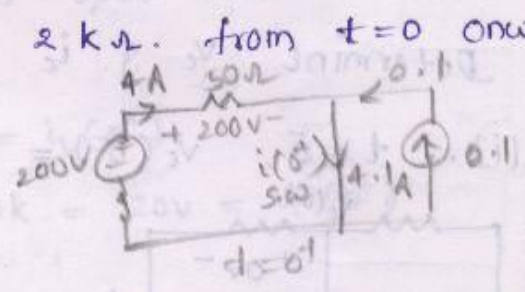 2 kΩ. from t=0 onw
4A 50Ω 0.1
+ 200V -
200V i(0⁺) 4.1A 0.1
s.w.
t=0⁺